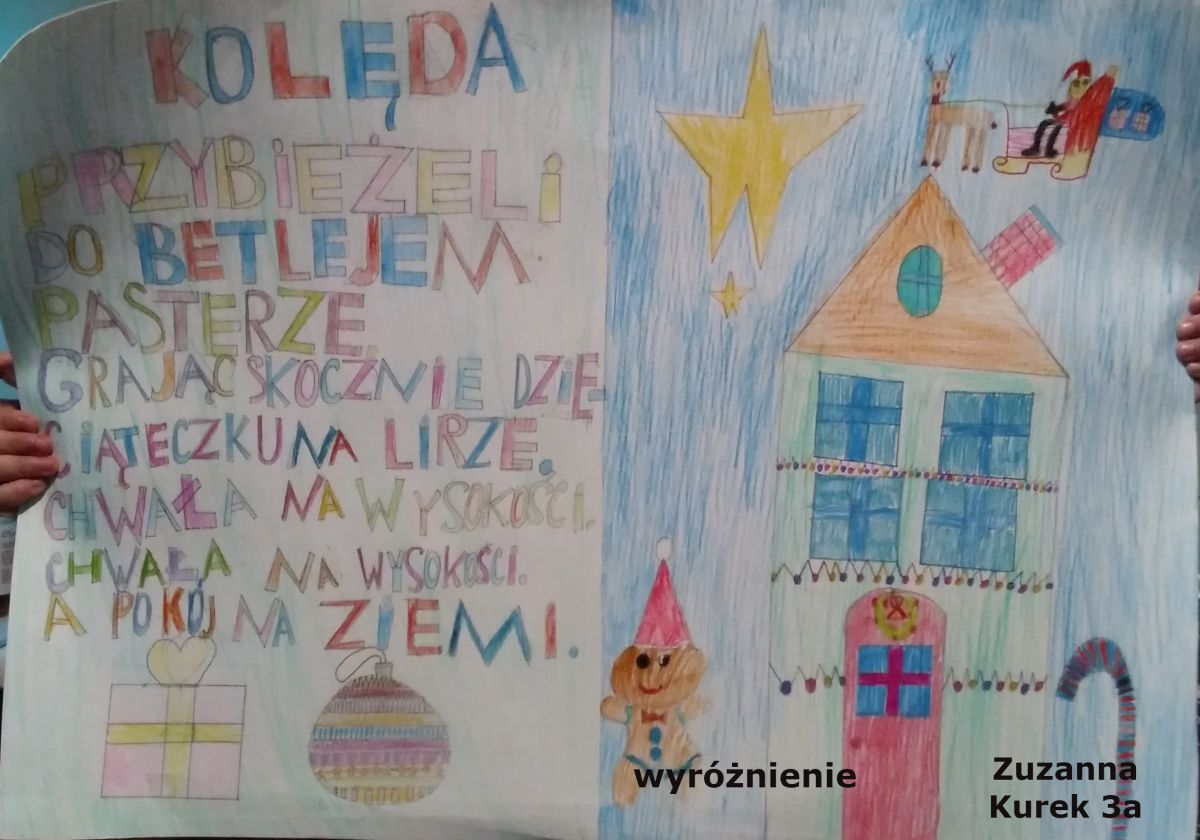 KOLĘDA
PRZYBIEŻELi
DO BETLEJEM
PASTERZE.
GRAJĄC SKOCZNIE DZIE-
CIĄTECZKU NA LIRZE.
CHWAŁA NA WYSOKOŚCI.
CHWAŁA NA WYSOKOŚCI.
A POKÓJ NA ZIEMI.
wyróżnienie
Zuzanna
Kurek 3a